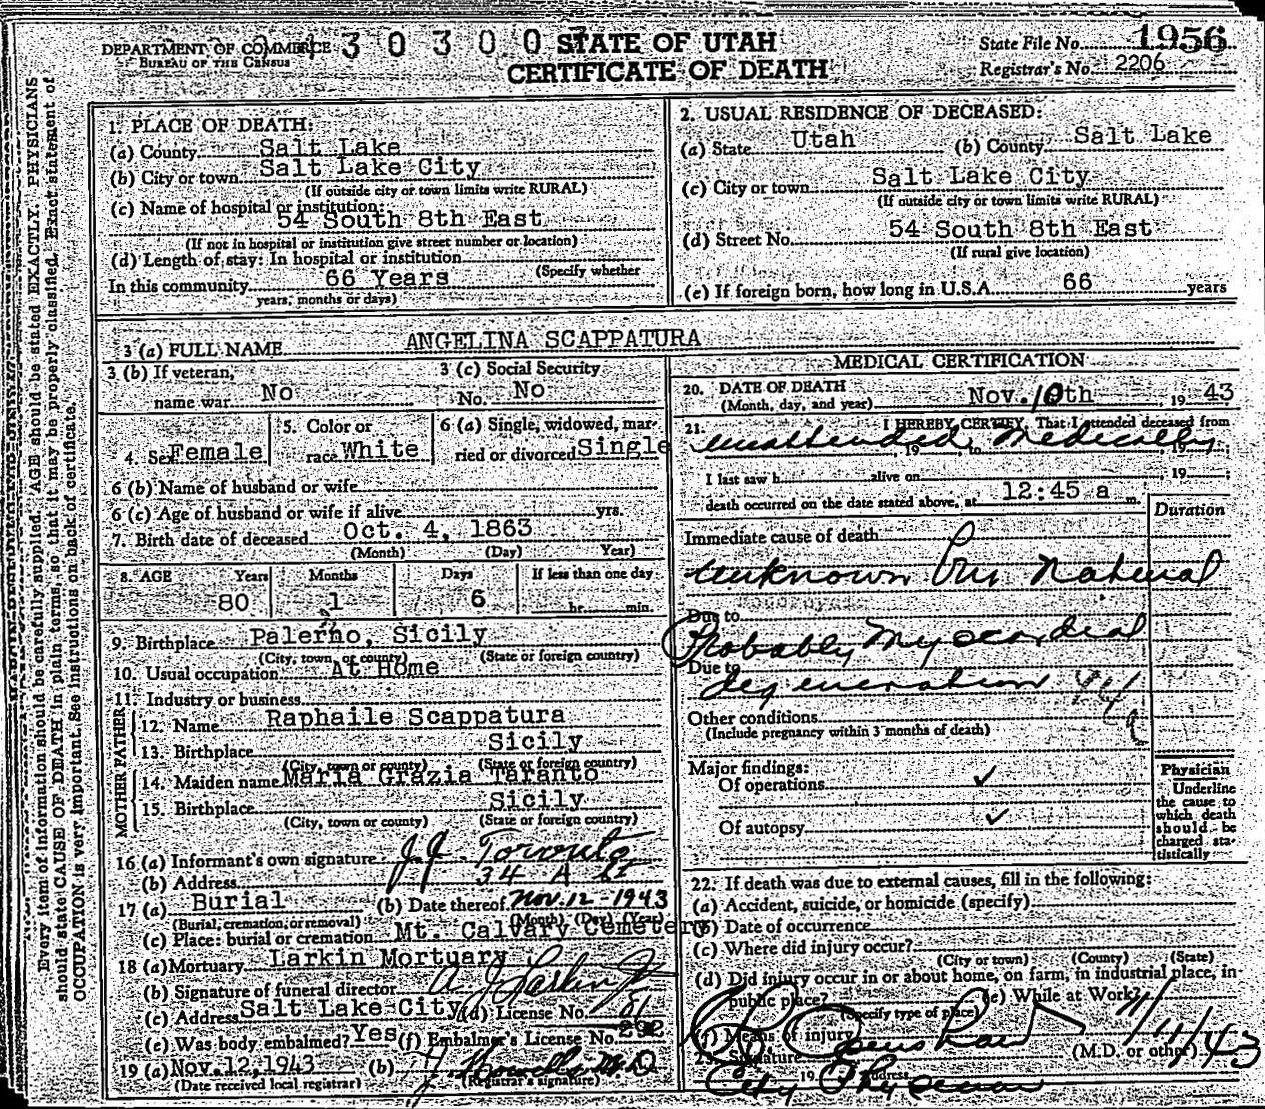 DEPARTMENT OF COMMERCE
BUREAU OF THE CENSUS
3 0 3 0 0
STATE OF UTAH
CERTIFICATE OF DEATH
State File No. 1956
Registrar's No. 2206
Every item of information should be carefully supplied. AGE should be stated EXACTLY. PHYSICIANS
should state CAUSE OF DEATH in plain terms, so that it may be properly classified. Exact statement of
OCCUPATION is very important. See instructions on back of certificate.
1. PLACE OF DEATH:
(a) County Salt Lake
(b) City or town Salt Lake City
(If outside city or town limits write RURAL)
(c) Name of hospital or institution:
54 South 8th East
(If not in hospital or institution give street number or location)
(d) Length of stay: In hospital or institution
(Specify whether
In this community 66 Years
years, months or days)
2. USUAL RESIDENCE OF DECEASED:
(a) State Utah (b) County Salt Lake
(c) City or town Salt Lake City
(If outside city or town limits write RURAL)
(d) Street No. 54 South 8th East
(If rural give location)
(e) If foreign born, how long in U.S.A. 66 years
3 (a) FULL NAME ANGELINA SCAPPATURA
3 (b) If veteran, name war No
3 (c) Social Security No. No
4. Sex Female
5. Color or race White
6 (a) Single, widowed, married or divorced Single
6 (b) Name of husband or wife
6 (c) Age of husband or wife if alive yrs.
7. Birth date of deceased Oct. 4, 1863
(Month) (Day) Year)
8. AGE Years Months Days If less than one day
80 1 6 hr. min.
9. Birthplace Palermo, Sicily
(City, town, or county) (State or foreign country)
10. Usual occupation At Home
11. Industry or business
FATHER
12. Name Raphaile Scappatura
13. Birthplace Sicily
(City, town or county) (State or foreign country)
MOTHER
14. Maiden name Maria Grazia Taranto
15. Birthplace Sicily
(City, town or county) (State or foreign country)
16 (a) Informant's own signature J J Toronto
(b) Address 34 A St
17 (a) Burial (b) Date thereof Nov. 12 - 1943
(Burial, cremation, or removal) (Month) (Day) (Year)
(c) Place: burial or cremation Mt. Calvary Cemetery
18 (a) Mortuary Larkin Mortuary
(b) Signature of funeral director A J Larkin Jr
(c) Address Salt Lake City (d) License No. 81
(e) Was body embalmed? Yes (f) Embalmer's License No. 202
19 (a) Nov. 12, 1943 (b) M.D
(Date received local registrar) (Registrar's signature)
MEDICAL CERTIFICATION
20. DATE OF DEATH
(Month, day, and year) Nov. 10th, 19 43
21. I HEREBY CERTIFY, That I attended deceased from
unattended, Medically, 19 , to , 19 ;
I last saw h alive on 19 ;
death occurred on the date stated above, at 12:45 a m.
Duration
Immediate cause of death
Unknown but Natural
Due to
Probably Myocardial
Due to
degeneration
Other conditions
(Include pregnancy within 3 months of death)
Major findings:
Of operations ✓
Of autopsy ✓
Physician
Underline
the cause to
which death
should be
charged sta-
tistically
22. If death was due to external causes, fill in the following:
(a) Accident, suicide, or homicide (specify)
(b) Date of occurrence
(c) Where did injury occur?
(City or town) (County) (State)
(d) Did injury occur in or about home, on farm, in industrial place, in
public place? (e) While at Work?
(Specify type of place)
(f) Means of injury
Signature (M.D. or other) 11/11/43
Address City Physician